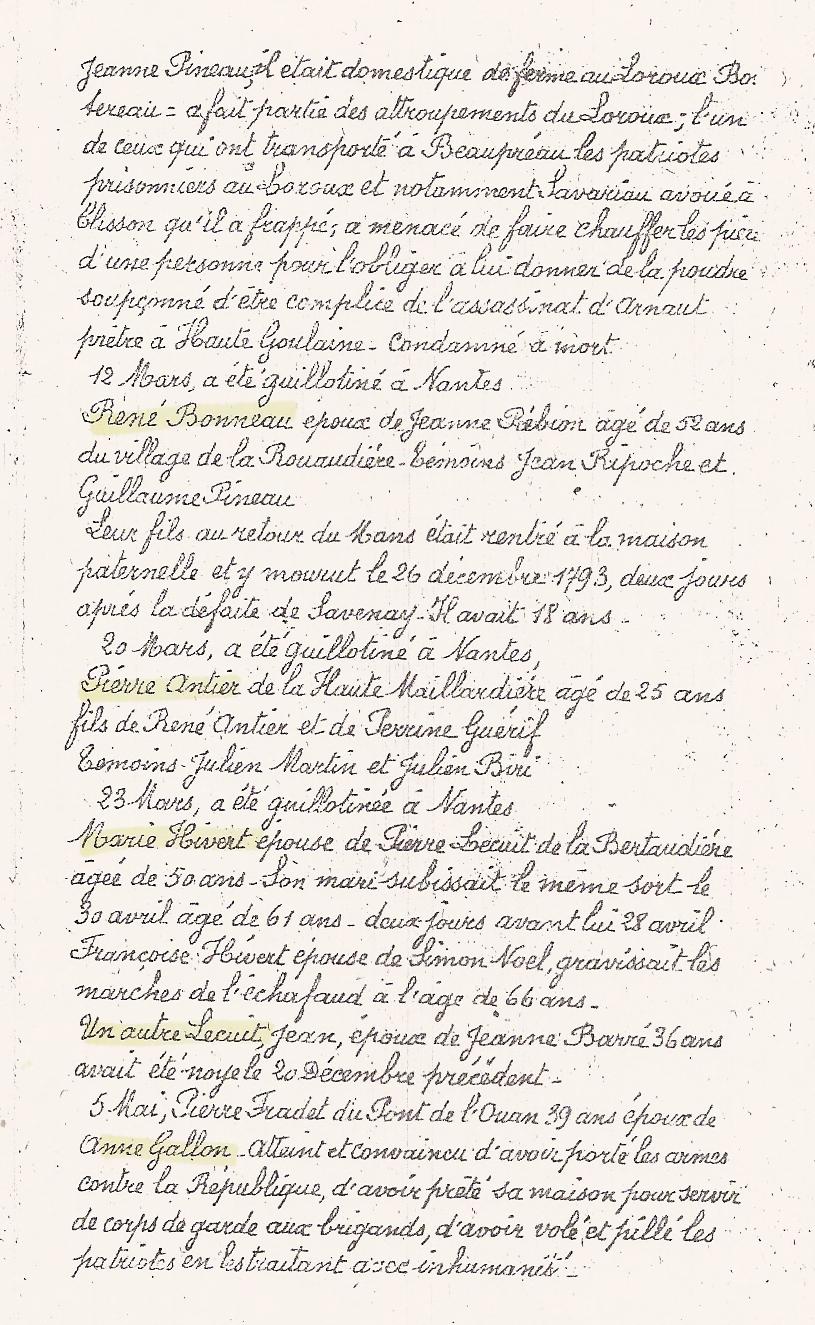 Jeanne Pineau, il était domestique de ferme au Loroux Bot
tereau = a fait partie des attroupements du Loroux ; l'un
de ceux qui ont transporté à Beaupréau les patriotes
prisonniers au Loroux et notamment Savariau avoué à
Clisson qu'il a frappé ; a menacé de faire chauffer les pieds
d'une personne pour l'obliger à lui donner de la poudre
soupçonné d'être complice de l'assassinat d'Arnaut
prêtre à Haute Goulaine - Condamné à mort
12 Mars, a été guillotiné à Nantes
René Bonneau époux de Jeanne Rébion âgé de 52 ans
du village de la Rouaudière - Témoins Jean Ripoche et
Guillaume Pineau
Leur fils au retour du Mans était rentré à la maison
paternelle et y mourut le 26 décembre 1793, deux jours
après la défaite de Savenay - Il avait 18 ans -
20 Mars, a été guillotiné à Nantes,
Pierre Antier de la Haute Maillardière âgé de 25 ans
fils de René Antier et de Perrine Guérif
Témoins - Julien Martin et Julien Biri
23 Mars, a été guillotinée à Nantes
Marie Hivert épouse de Pierre Lecuit de la Bertaudière
âgée de 50 ans - Son mari subissait le même sort le
30 avril âgé de 61 ans - deux jours avant lui 28 avril
Françoise Hivert épouse de Simon Noel, gravissait les
marches de l'échafaud à l'âge de 66 ans -
Un autre Lecuit, Jean, époux de Jeanne Barré 36 ans
avait été noyé le 20 Décembre précédent -
5 Mai, Pierre Fradet du Pont de l'Ouan 39 ans époux de
Anne Gallon - Atteint et convaincu d'avoir porté les armes
contre la République, d'avoir prêté sa maison pour servir
de corps de garde aux brigands, d'avoir volé et pillé les
patriotes en les traitant avec inhumanité -